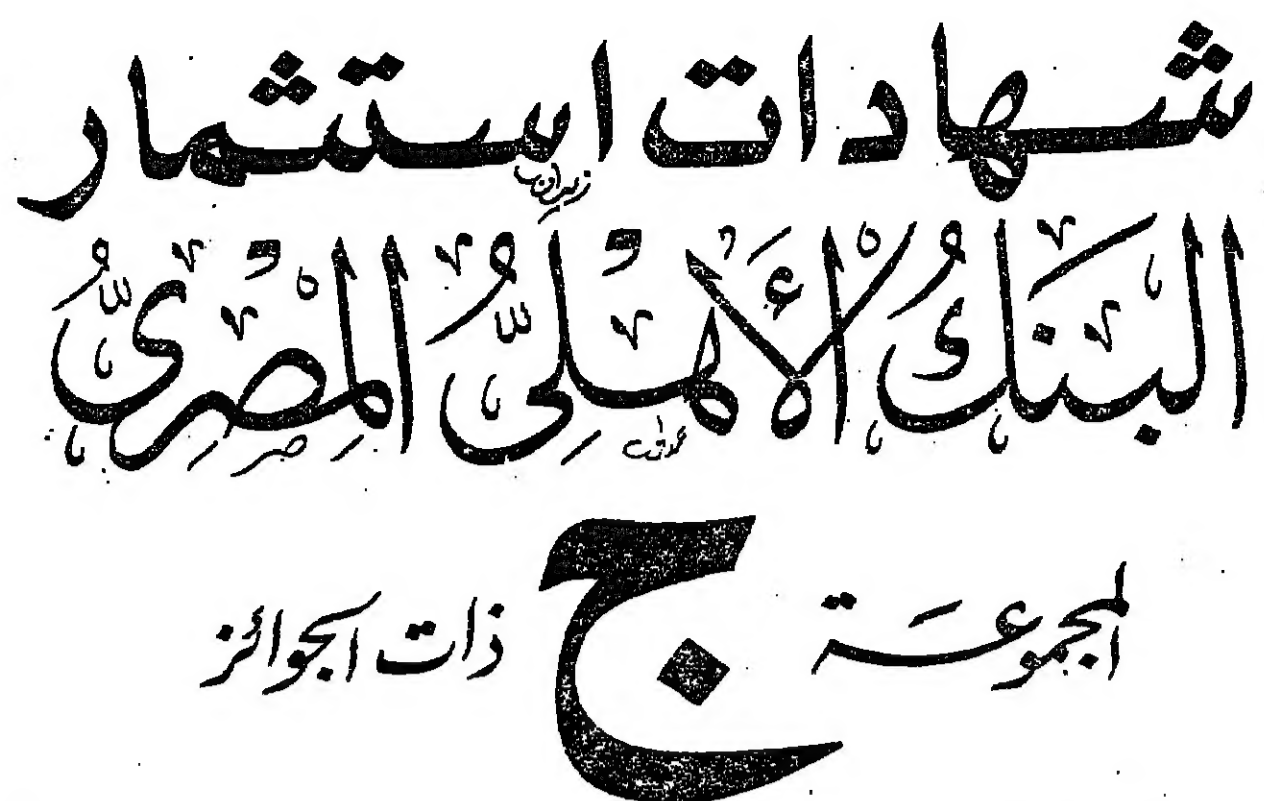 شهادات استثمار
البَنكُ الأَهْلِىُّ المِصْرِىُّ
المجموعة ج ذات الجوائز